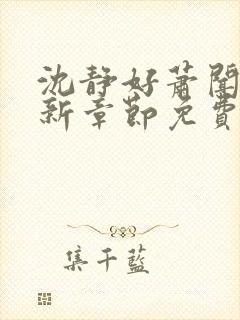 沈静好萧闻
新章节免费
集千蓝